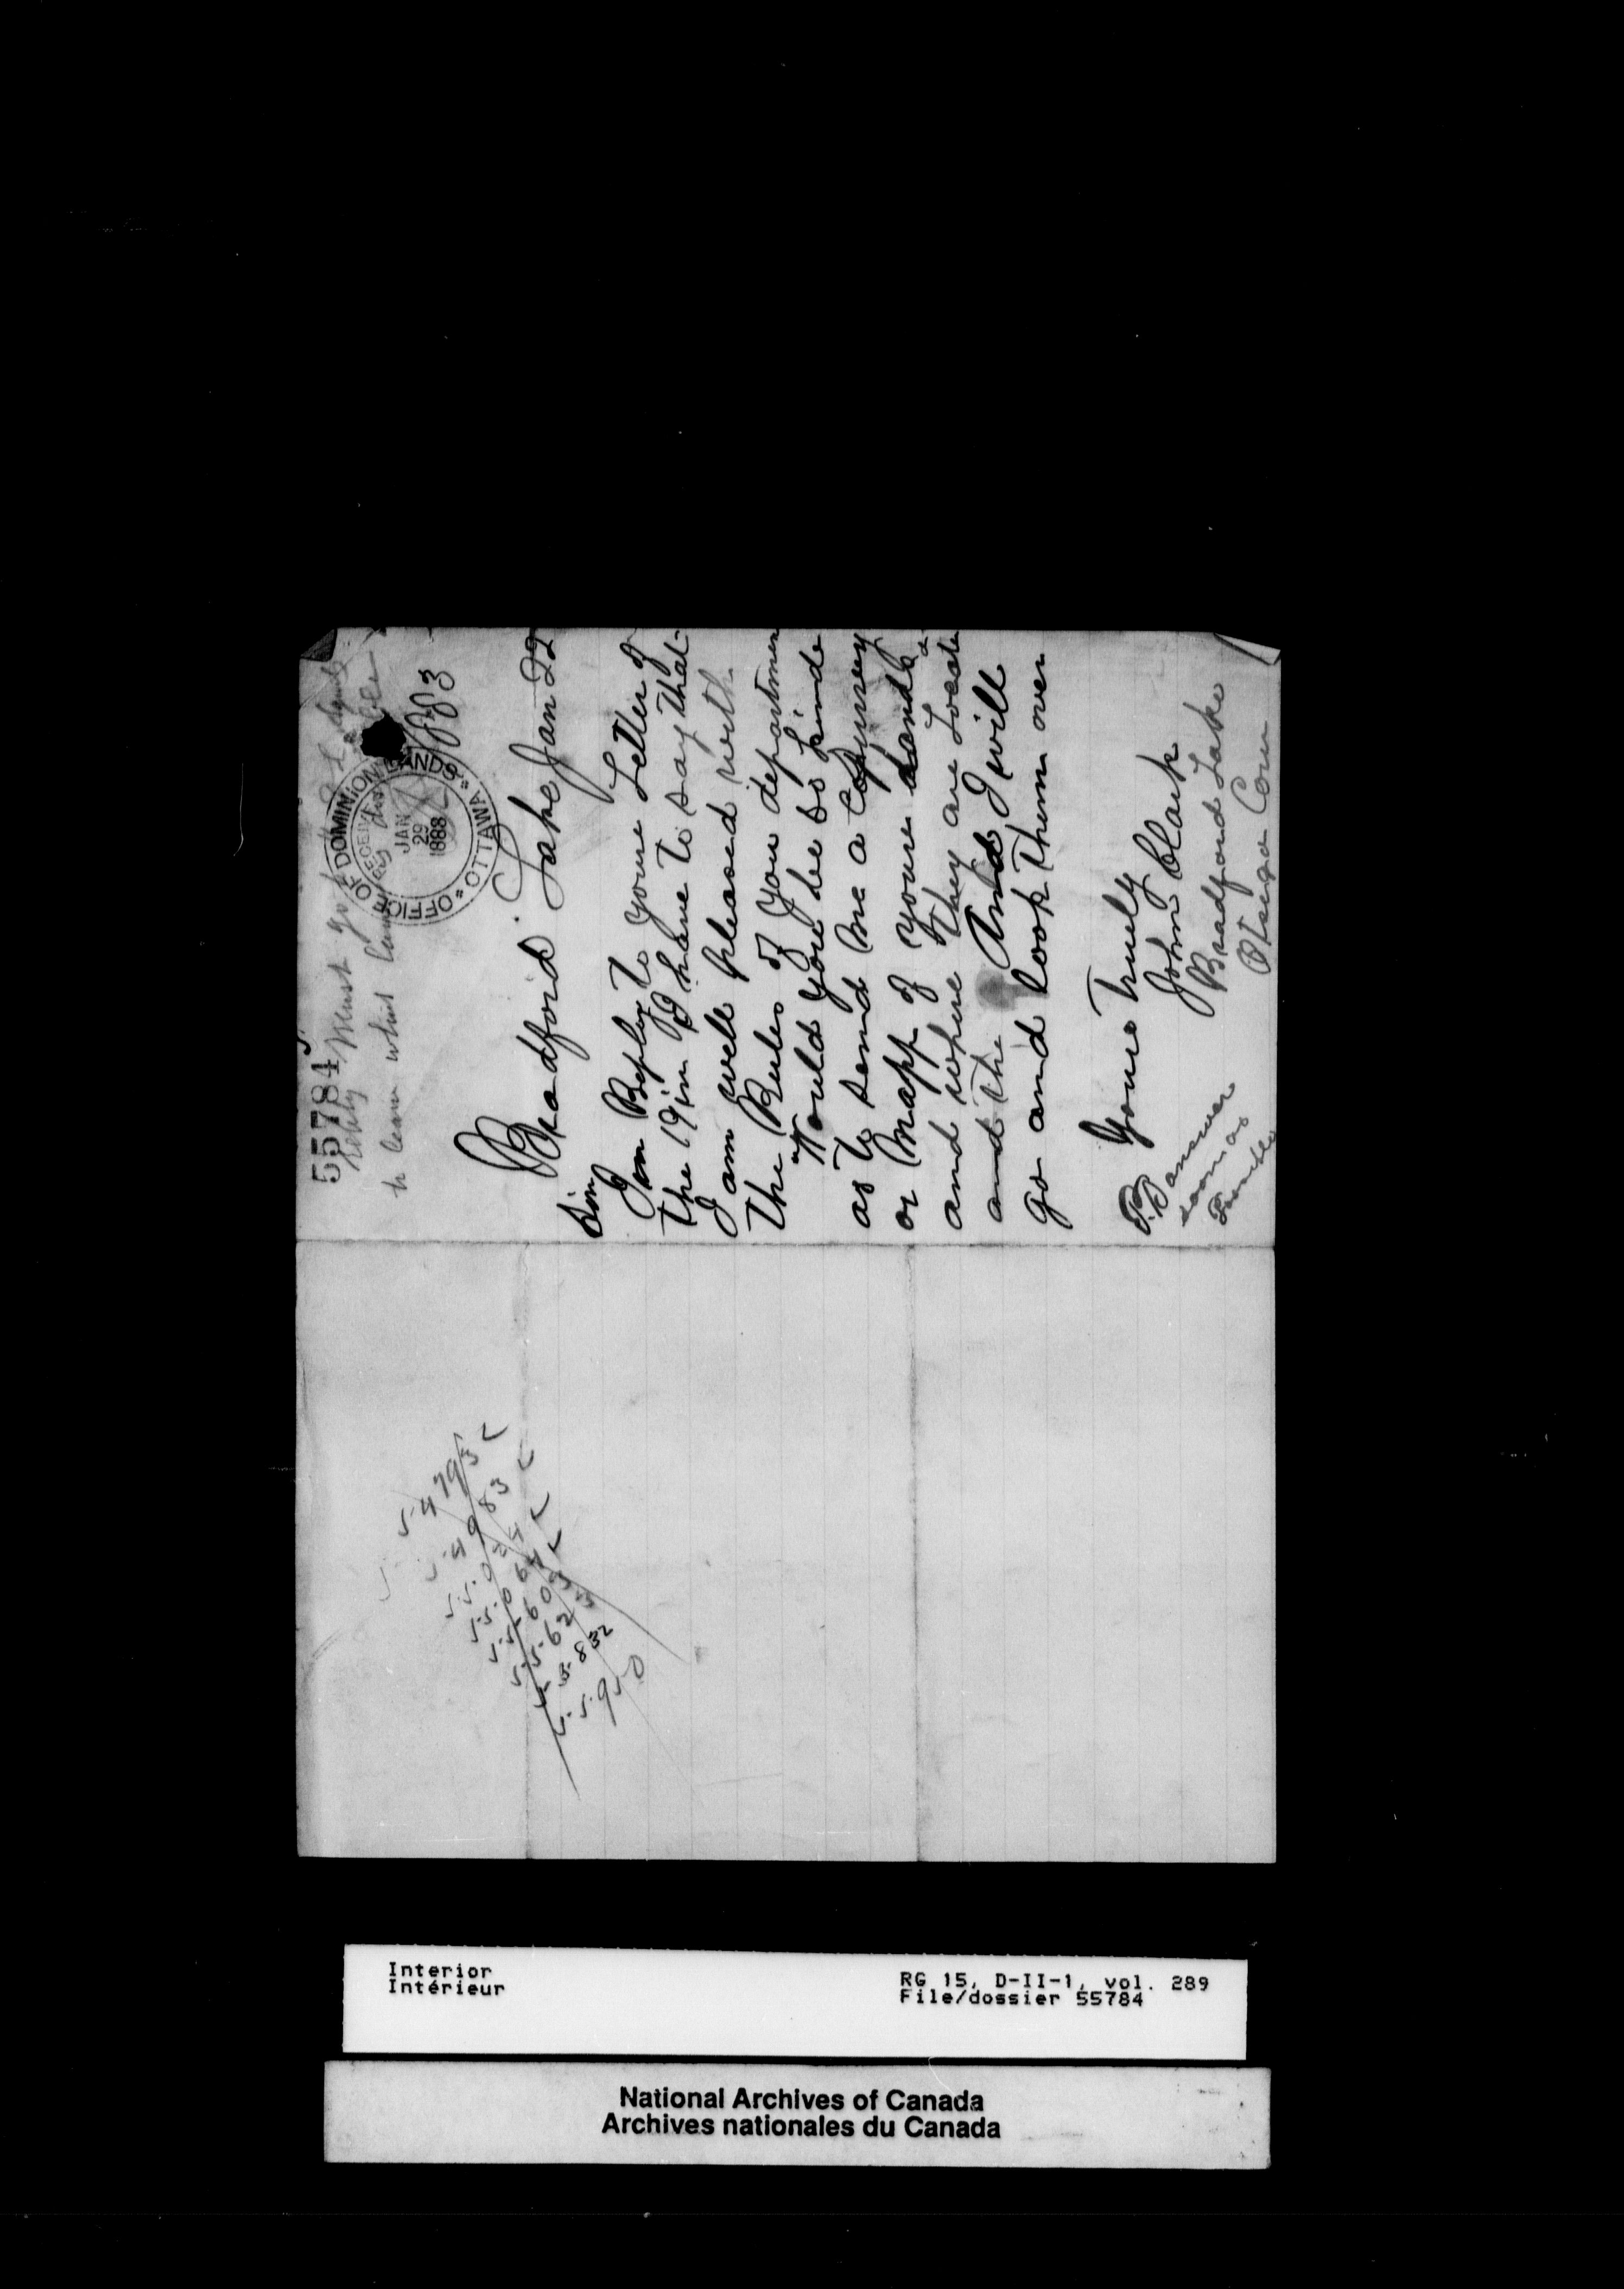 55784
Reply Must go to Ld Agent
to learn what lands are dis
OFFICE OF DOMINION LANDS
RECEIVED
JAN
29
1883
OTTAWA
Bradford Lake Jan 22
1883
Sir
In Reply to youre Letter of
the 19 in I have to say that
I am well pleased with
the Rules of you departmen
Would you be so kinde
as to send me a Copy
or Mapp of youre lands
and where they are Locate
and the And I will
go and look them over
Youre Truely
John Clark
Bradford Lake
Otsego Coun
P.S answer
soon as
54793
54983
55024
55064
55609
55623
55832
55950
Interior
Intérieur
RG 15, D-II-1, vol. 289
File/dossier 55784
National Archives of Canada
Archives nationales du Canada